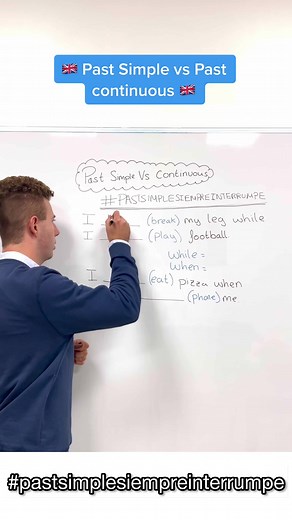 🇬🇧 Past Simple vs Past
continuous 🇬🇧
Past Simple Vs Continuous
#PASTSIMPLESIEMPREINTERRUMPE
I ______ (break) my leg while
I ______ (play) football
While =
When =
I ______ (eat) pizza when
______ (phone) me
#pastsimplesiempreinterrumpe